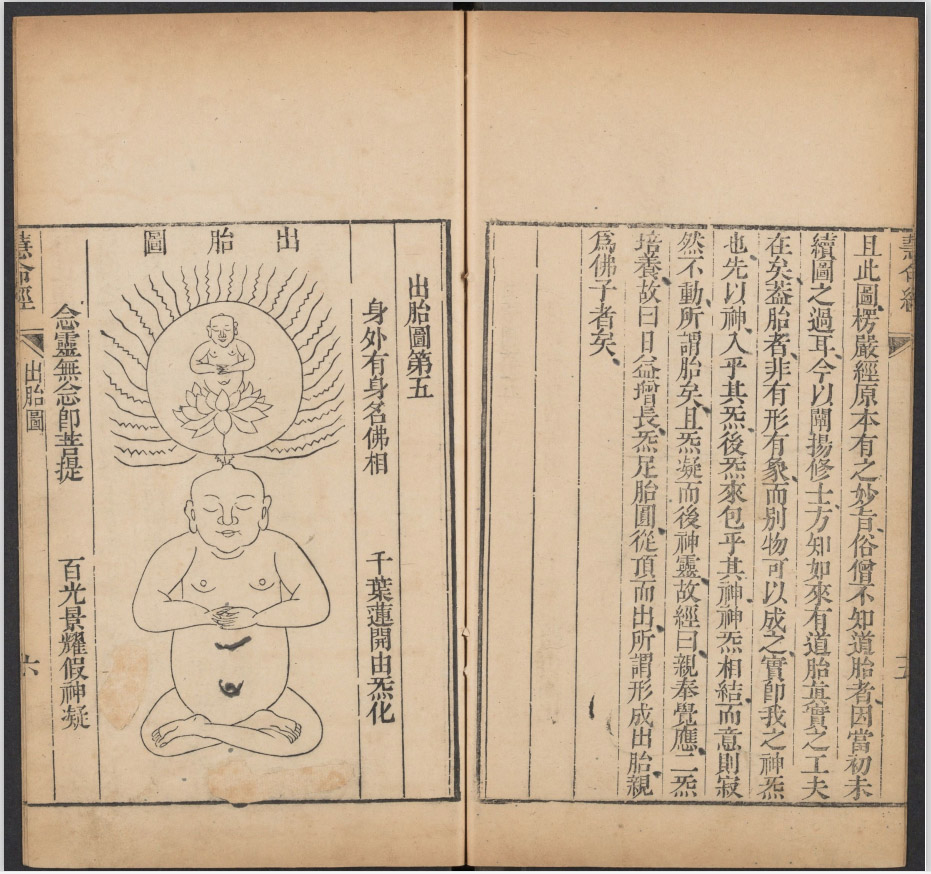 慧命經
五
且此圖楞嚴經原本有之妙旨俗僧不知道胎者因當初未
續圖之過耳今以闡揚修士方知如來有道胎真實之工夫
在矣葢胎者非有形有象而別物可以成之實即我之神炁
也先以神入乎其炁後炁來包乎其神神炁相結而意則寂
然不動所謂胎矣且炁凝而後神靈故經曰親奉覺應二炁
培養故曰日益增長炁足胎圓從頂而出所謂形成出胎親
爲佛子者矣
出胎圖第五
身外有身名佛相　千葉蓮開由炁化
出胎圖
念靈無念卽菩提　百光景耀假神凝
慧命經
出胎圖
六